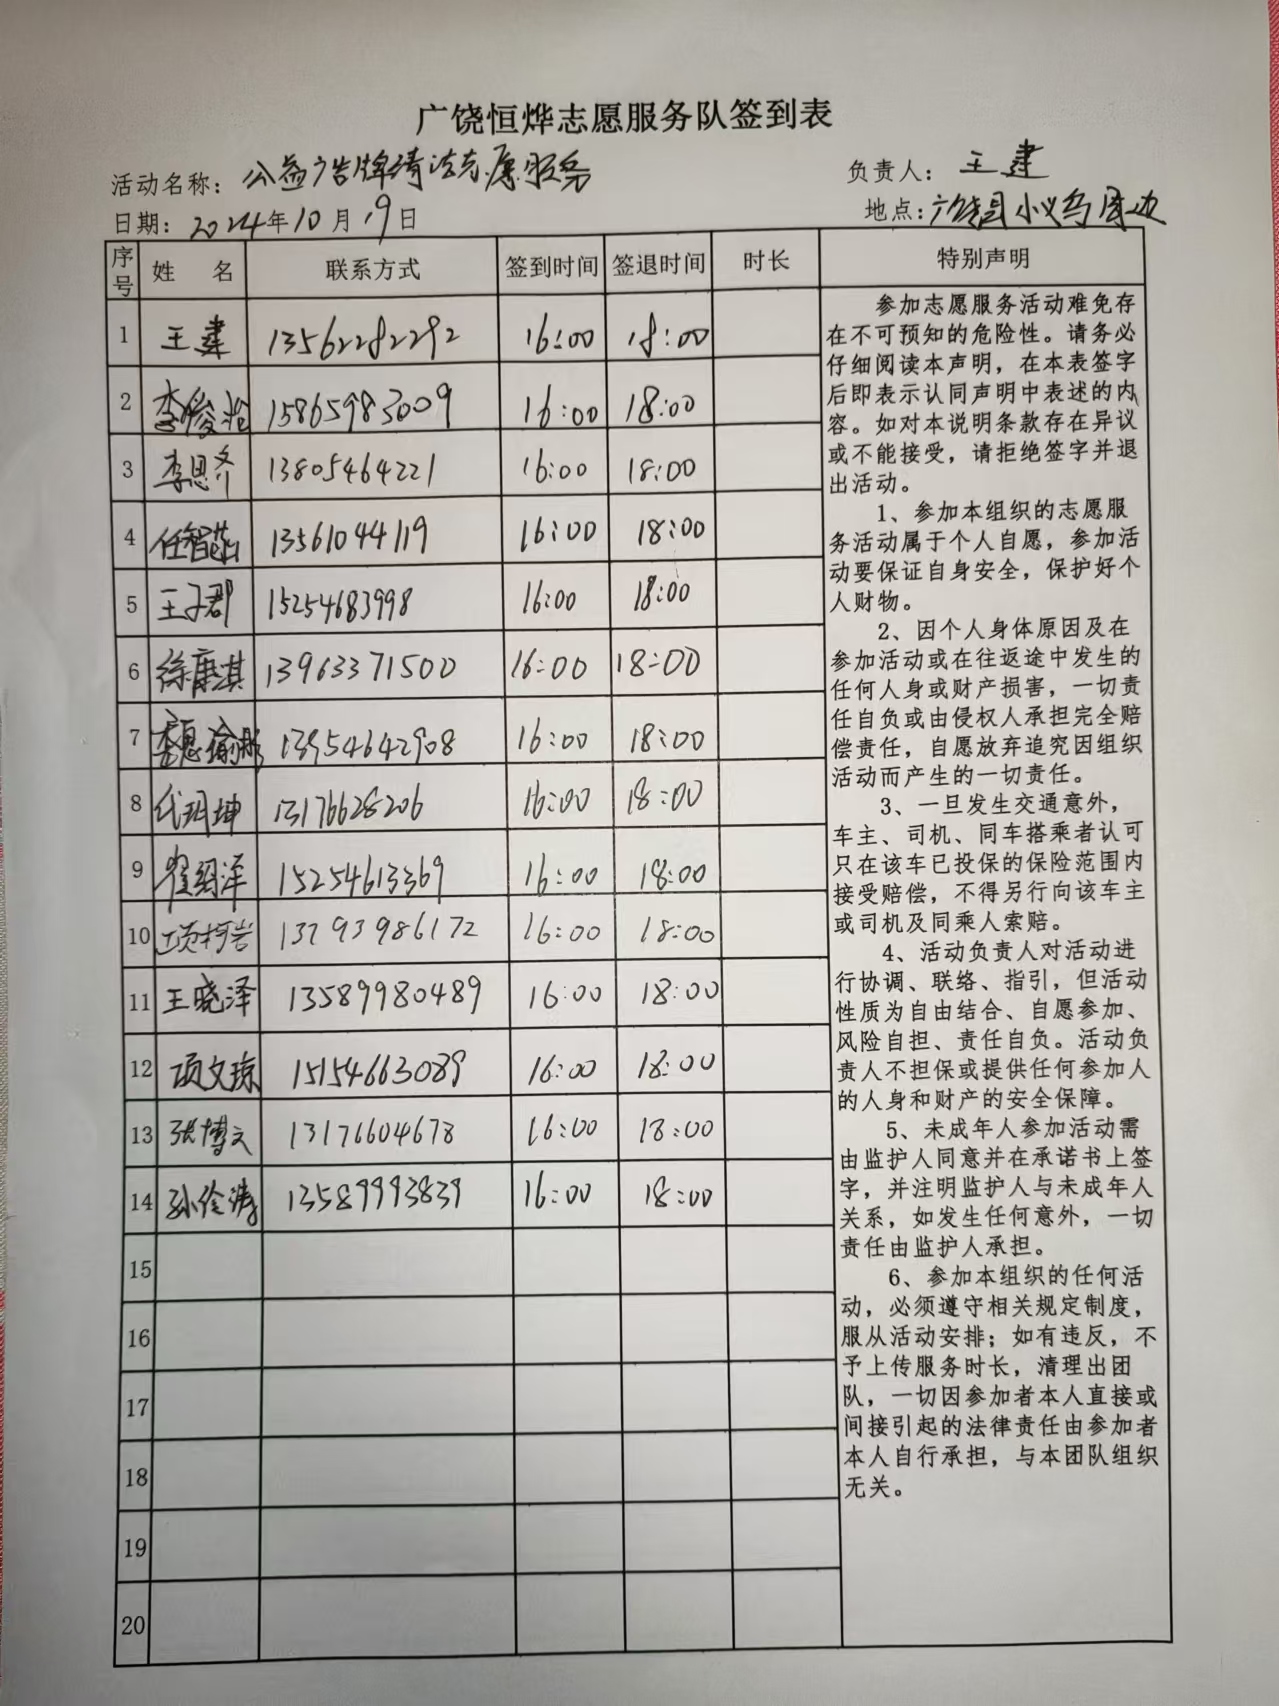 广饶恒烨志愿服务队签到表
活动名称：公益广告牌清洁志愿服务 负责人：王建
日期：2024年10月19日 地点：广饶县小义乌周边
序号 姓 名 联系方式 签到时间 签退时间 时长 特别声明
1 王建 13562282292 16:00 18:00
2 李俊 15865983009 16:00 18:00
3 李恩齐 13805464221 16:00 18:00
4 任智 13561044119 16:00 18:00
5 王子郡 15254683998 16:00 18:00
6 徐康淇 13963371500 16:00 18:00
7 13954642908 16:00 18:00
8 代玥坤 13176628206 16:00 18:00
9 崔绍洋 15254613369 16:00 18:00
10 项柯岩 13793986172 16:00 18:00
11 王晓泽 13589980489 16:00 18:00
12 项文琼 15154663089 16:00 18:00
13 张博文 13176604678 16:00 18:00
14 孙俭涛 13589993839 16:00 18:00
15
16
17
18
19
20
参加志愿服务活动难免存
在不可预知的危险性。请务必
仔细阅读本声明，在本表签字
后即表示认同声明中表述的内
容。如对本说明条款存在异议
或不能接受，请拒绝签字并退
出活动。
1、参加本组织的志愿服
务活动属于个人自愿，参加活
动要保证自身安全，保护好个
人财物。
2、因个人身体原因及在
参加活动或在往返途中发生的
任何人身或财产损害，一切责
任自负或由侵权人承担完全赔
偿责任，自愿放弃追究因组织
活动而产生的一切责任。
3、一旦发生交通意外，
车主、司机、同车搭乘者认可
只在该车已投保的保险范围内
接受赔偿，不得另行向该车主
或司机及同乘人索赔。
4、活动负责人对活动进
行协调、联络、指引，但活动
性质为自由结合、自愿参加、
风险自担、责任自负。活动负
责人不担保或提供任何参加人
的人身和财产的安全保障。
5、未成年人参加活动需
由监护人同意并在承诺书上签
字，并注明监护人与未成年人
关系，如发生任何意外，一切
责任由监护人承担。
6、参加本组织的任何活
动，必须遵守相关规定制度，
服从活动安排；如有违反，不
予上传服务时长，清理出团
队，一切因参加者本人直接或
间接引起的法律责任由参加者
本人自行承担，与本团队组织
无关。